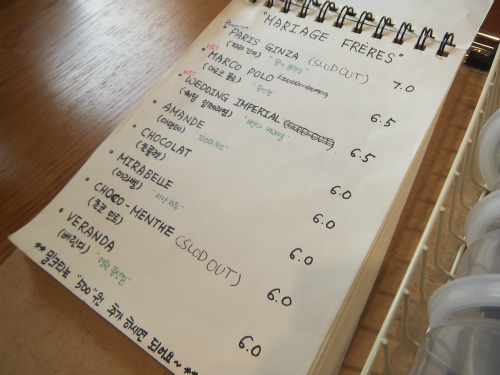 "MARIAGE FRÈRES"
• PARIS GINZA (SLOD OUT) 7.0
(파리 긴자)
HIT
• MARCO POLO 6.5
(마르코 폴로)
HIT
• WEDDING IMPERIAL 6.5
(웨딩 임페리얼)
• AMANDE 6.0
(아망디)
• CHOCOLAT 6.0
(쵸콜라)
• MIRABELLE 6.0
(미라벨)
• CHOCO-MENTHE (SLOD OUT) 6.0
(초코 민트)
• VERANDA 6.0
(베란다)
** 밀크티는 "500"원 추가 하시면 되어요~ **